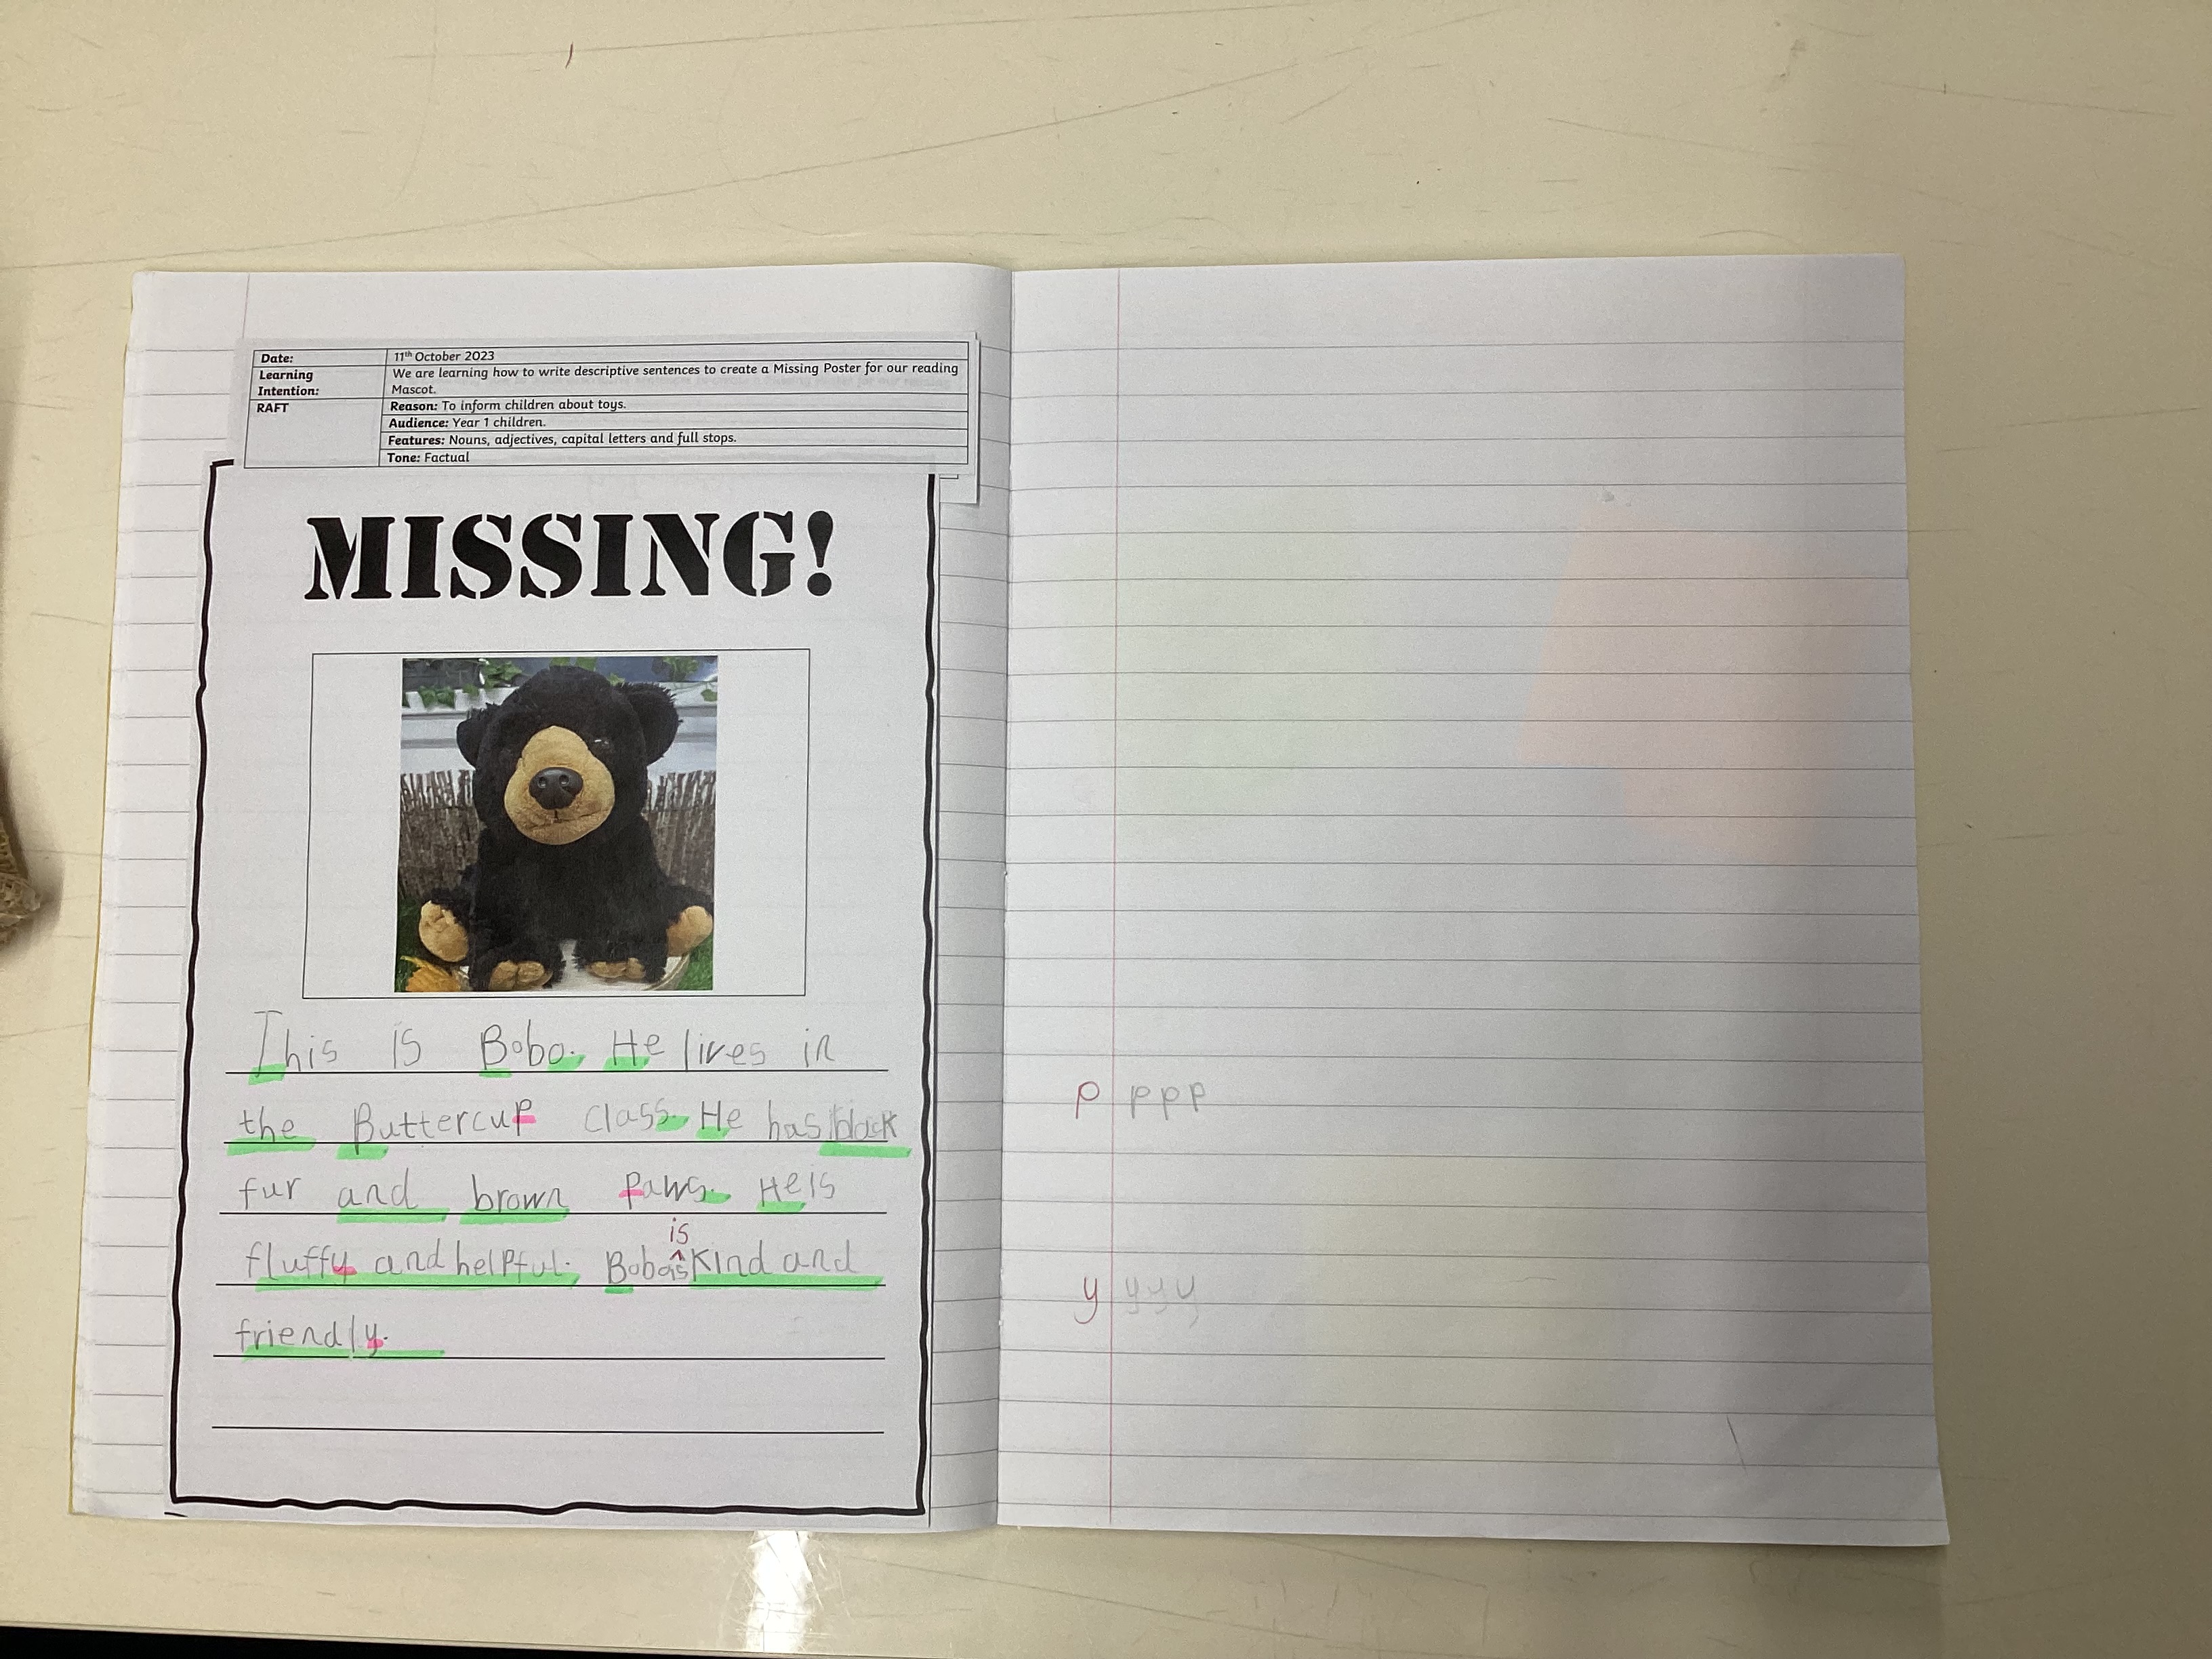 Date: 11th October 2023
Learning Intention: We are learning how to write descriptive sentences to create a Missing Poster for our reading Mascot.
RAFT Reason: To inform children about toys.
Audience: Year 1 children.
Features: Nouns, adjectives, capital letters and full stops.
Tone: Factual
MISSING!
This is Bobo. He lives in
the Buttercup class. He has black
fur and brown paws. He is
is
fluffy and helpful. Bobo as kind and
friendly.
p ppp
y yyy